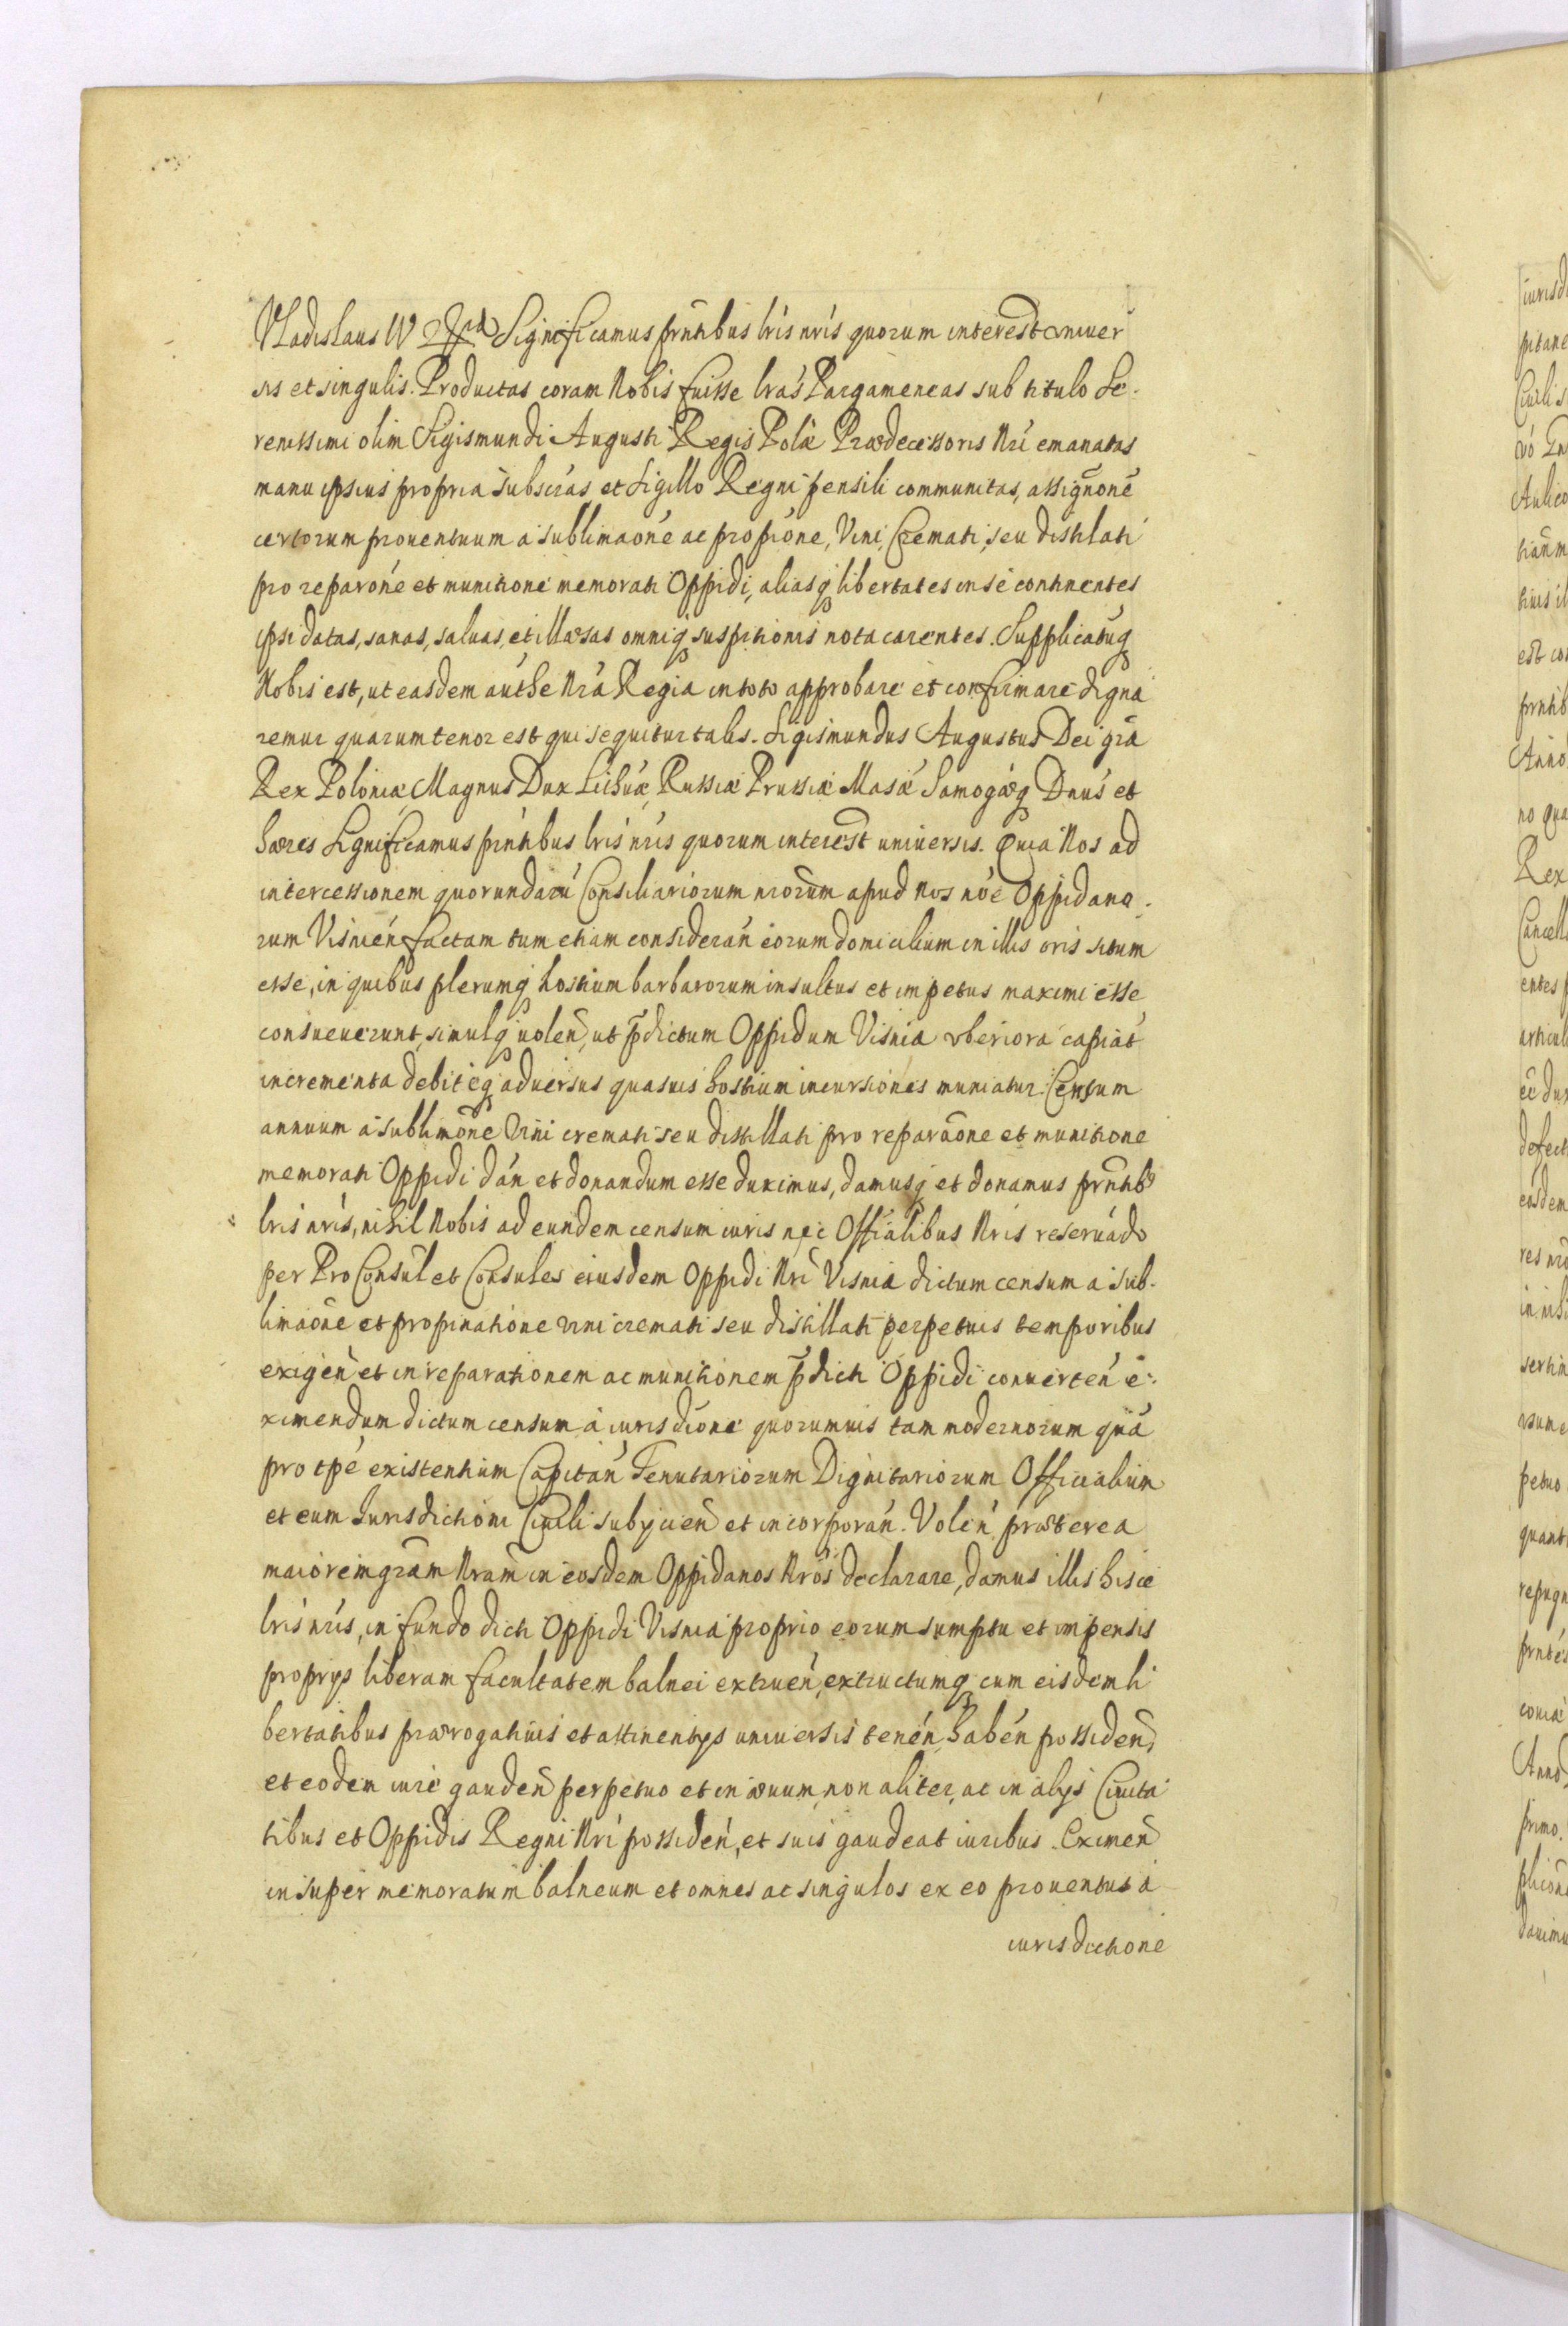 Vladislaus IV Significamus pr̃ntibus lr̃is nr̃is quorum interest univer
sis et singulis. Productas coram Nobis fuisse lr̃as Pargameneas sub titulo Se-
renissimi olim Sigismundi Augusti Regis Polæ Prædecessoris Nr̃i emanatas
manu ipsius propria subscr̃as, et Sigillo Regni pensili communitas, assignonẽ
certorum proventuum a sublimaone ac propione, Vini Cremati, seu distilati
pro reparone et munitione memorati Oppidi, aliasq libertates in se continentes
ipsi datas, sanas, salvas, et illæsas omniq suspitionis nota carentes. Supplicatuq
Nobis est, ut easdem authe Nr̃a Regia in toto approbare et confirmare digna
remur quarum tenor est qui sequitur talis. Sigismundus Augustus Dei gr̃a
Rex Poloniæ Magnus Dux Lithuæ, Russiæ Prussiæ Masæ Samogæq Dnus et
hæres Significamus pr̃ntibus lr̃is nr̃is quorum interest universis. Quia Nos ad
intercessionem quorundaru Consiliariorum nrorum apud nos noe Oppidano-
rum Visnien factam tum etiam consideran eorum domicilium in illis oris situm
esse, in quibus plerumq hostium barbarorum insultus et impetus maximi esse
consueverunt, simulq volen, ut p̃dictum Oppidum Visnia uberiora capiat
incrementa debiteq adversus quasvis hostium incursiones muniatur. Censum
annuum a sublimone Vini cremati seu distillati pro reparaone et munitione
memorati Oppidi dan et donandum esse duximus, damusq et donamus pr̃ntibs
lr̃is nr̃is, nihil Nobis ad eundem censum iuris nec Offialibus Nr̃is reservado
per Pro Consul et Consules eiusdem Oppidi Nr̃i Visnia dictum censum a sub-
limaone et propinatione vini cremati seu distillati perpetuis temporibus
exigen et in reparationem ac munitionem p̃dicti Oppidi converten e-
ximendum dictum censum a iurisdione quorumvis tam modernorum qua
pro tpe existentium Capitan Tenutariorum Dignitariorum Officialium
et eum Iurisdictioni Civili subijcien et incorporan. Volen præterea
maiorem gr̃am Nr̃am in eosdem Oppidanos Nr̃os declarare, damus illis hisce
lr̃is nr̃is, in fundo dicti Oppidi Visnia proprio eorum sumptu et impensis
proprijs liberam facultatem balnei extruen, extructumq cum eisdem li
bertatibus prærogativis et attinentijs universis tenen, haben possiden,
et eodem iure gauden perpetuo et in ævum, non aliter, ac in alijs Civita
tibus et Oppidis Regni Nr̃i possiden, et suis gaudeat iuribus. Eximen
insuper memoratum balneum et omnes ac singulos ex eo proventus a
iurisdictione